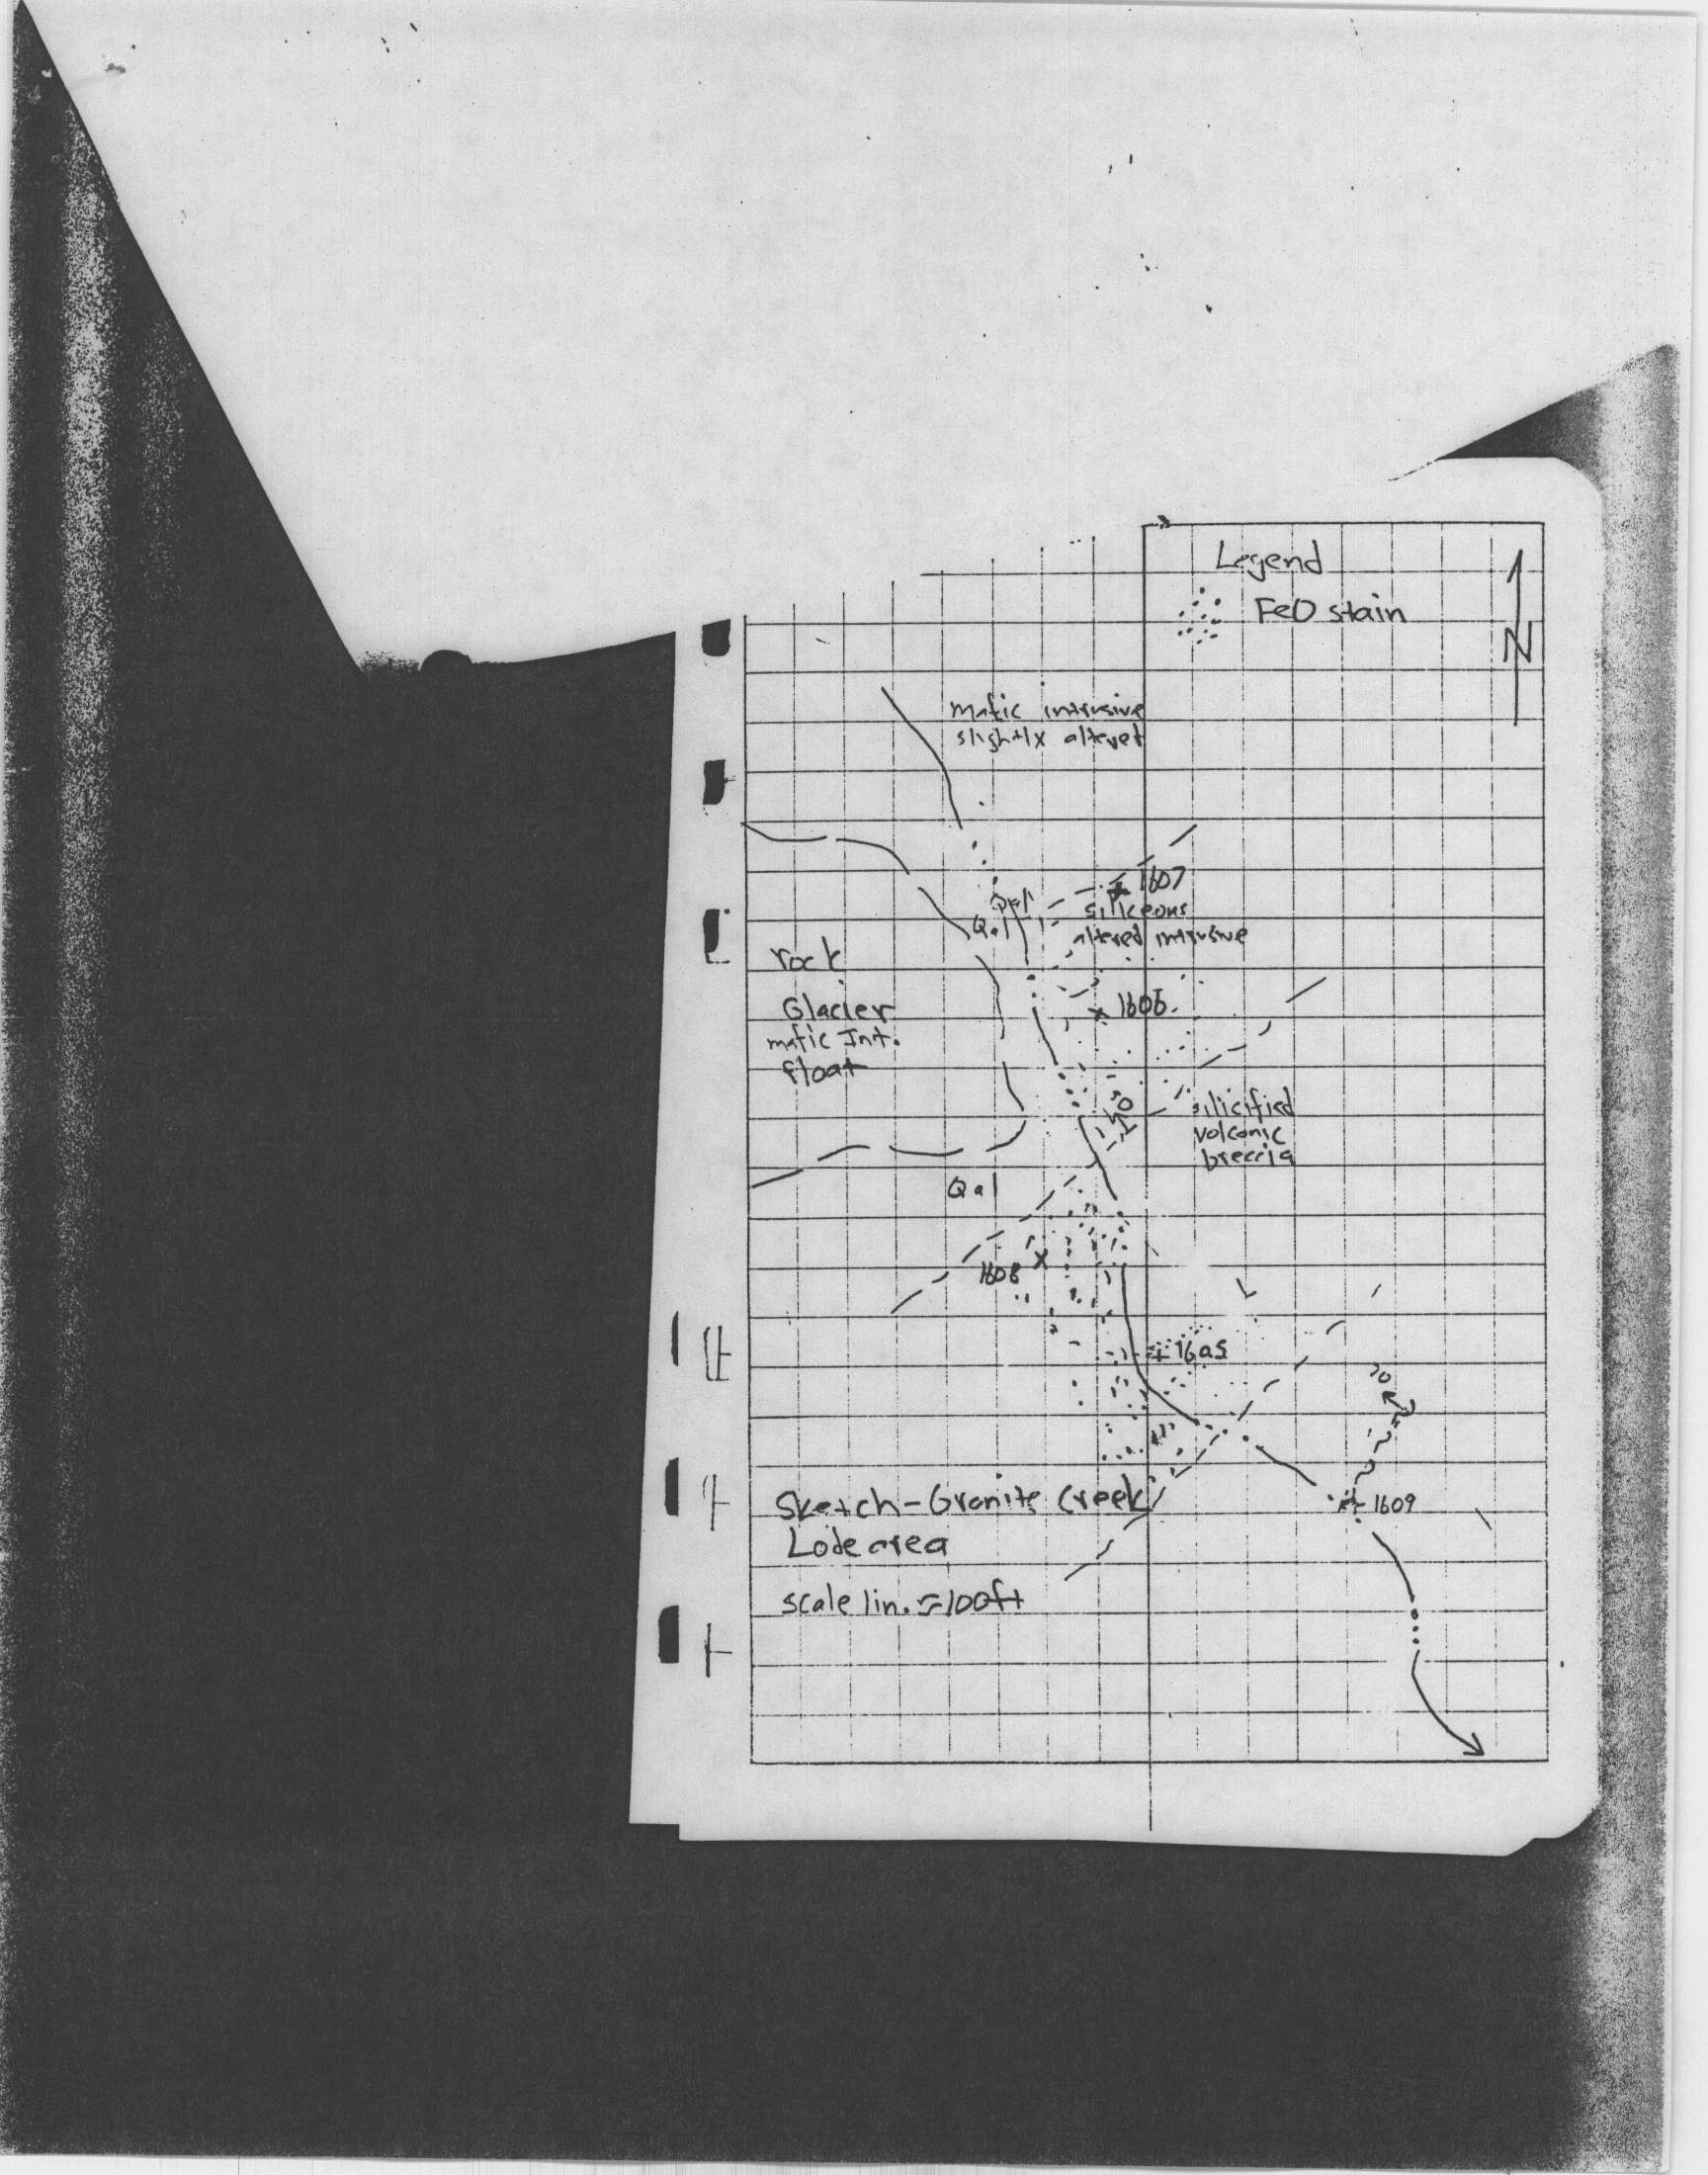 Legend
FeO stain
N
mafic intrusive
slightly altered
1607
Qal
Qal
siliceous
altered intrusive
rock
Glacier
mafic Int.
float
1606
50
silicified
volcanic
breccia
Qal
1608
1605
70
1609
Sketch-Granite Creek
Lode area
scale 1in.≈100ft